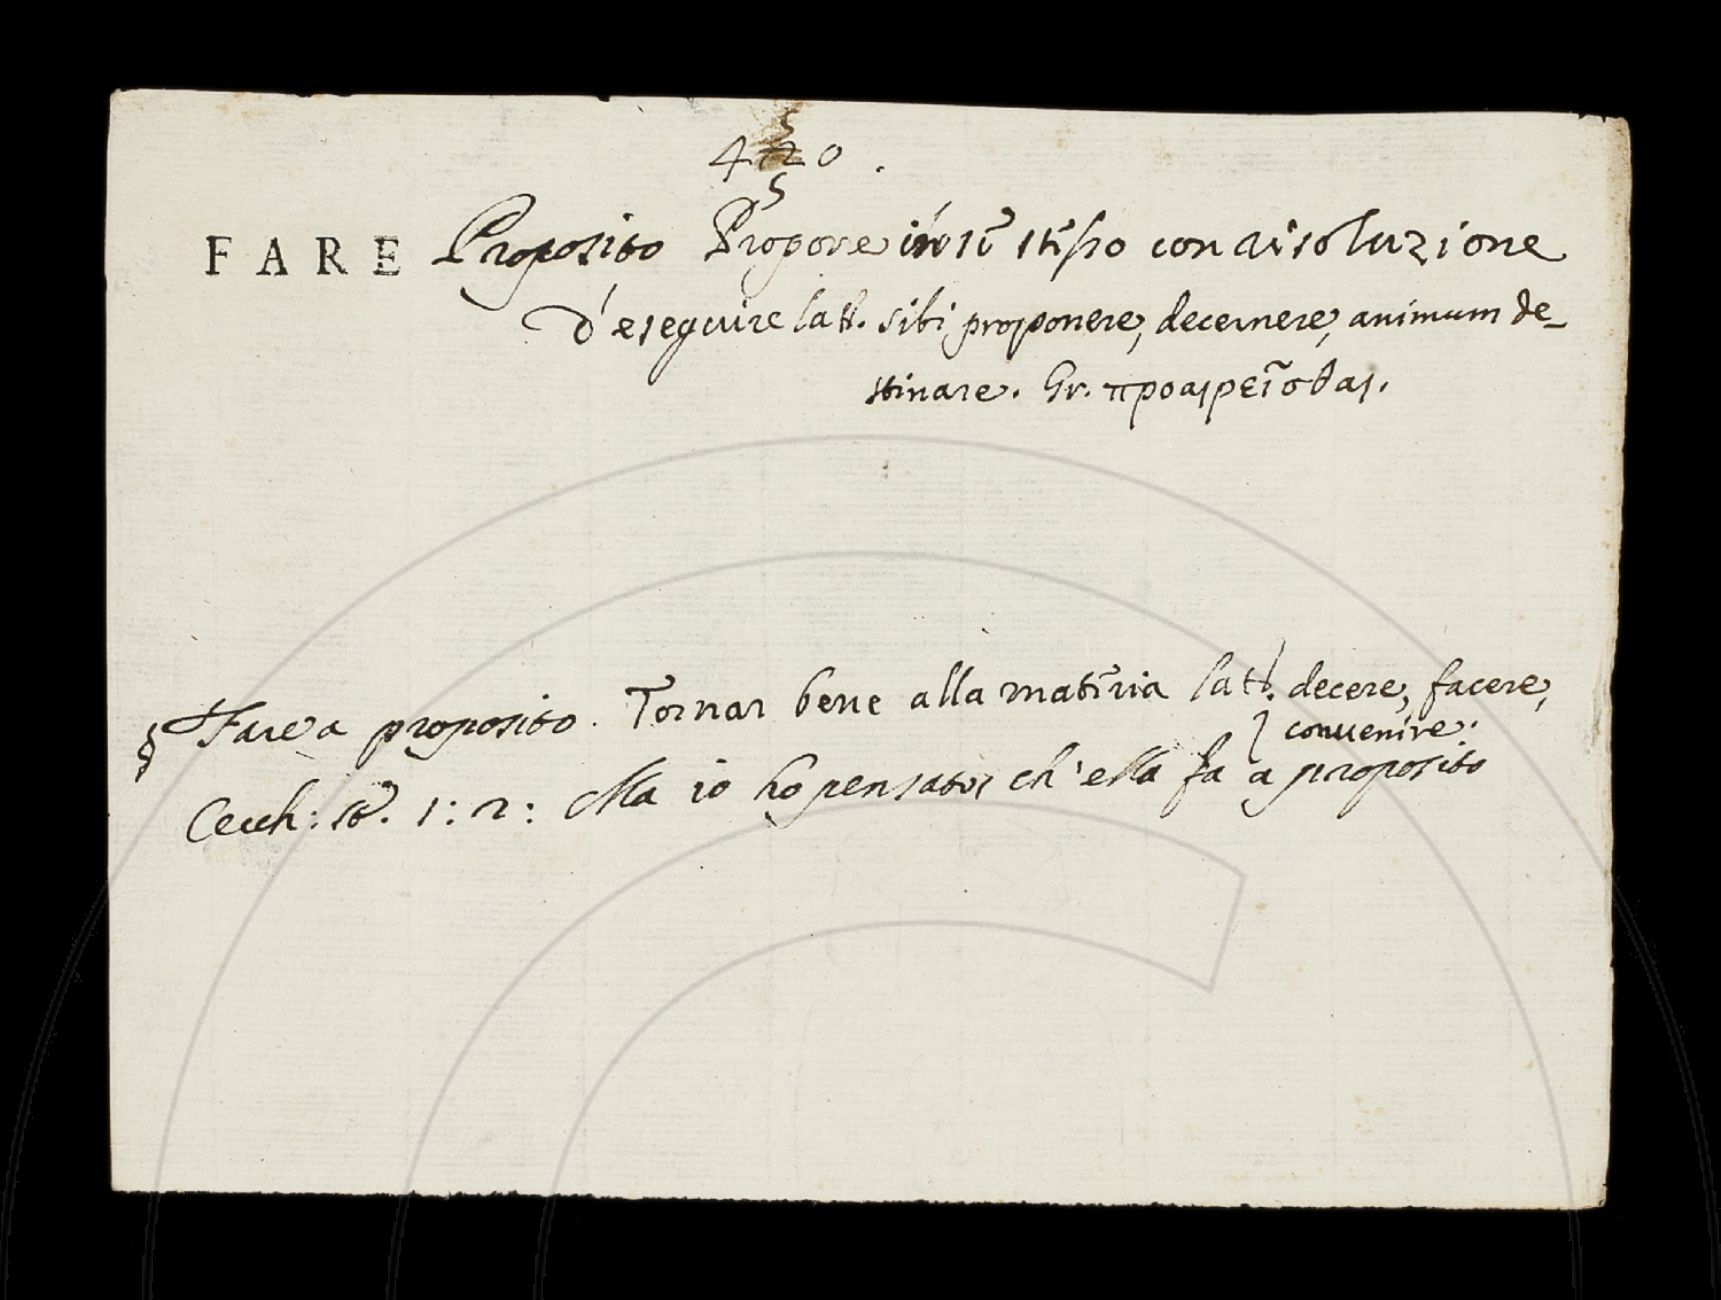 450.
FARE Proposito Propore in se stesso con risoluzione
d'eseguire latt. sibi proponere, decernere, animum de-
stinare. Gr. προαιρεῖσθαι.
§ Fare a proposito. Tornar bene alla materia latt. decere, facere,
convenire.
Cecch: 1: 2: Ma io ho pensato, ch'ella fa a proposito